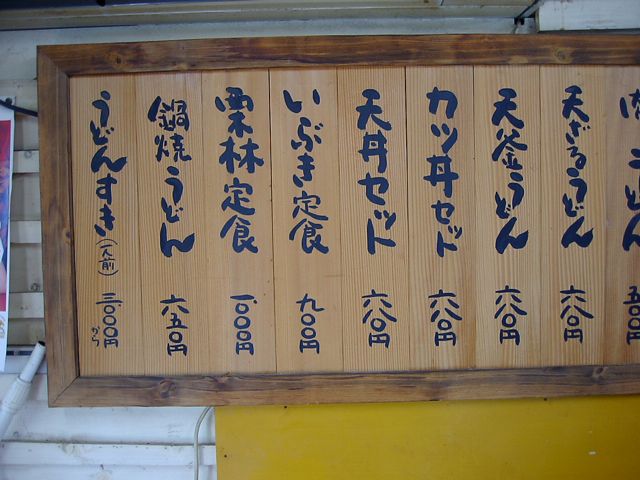 うどん 五〇〇円
天ざるうどん 六八〇円
天釜うどん 六八〇円
カツ丼セット 六八〇円
天丼セット 六八〇円
いぶき定食 九〇〇円
栗林定食 一、〇〇〇円
鍋焼うどん 六五〇円
うどんすき(一人前) 三、〇〇〇円から